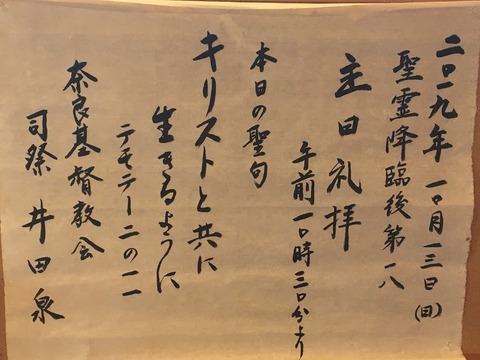 二〇一九年 一〇月一三日(日)
聖霊降臨後第一八
主日礼拝
午前一〇時三〇分より
本日の聖句
キリストと共に
生きるように
テモテー二の一一
奈良基督教会
司祭 井田泉